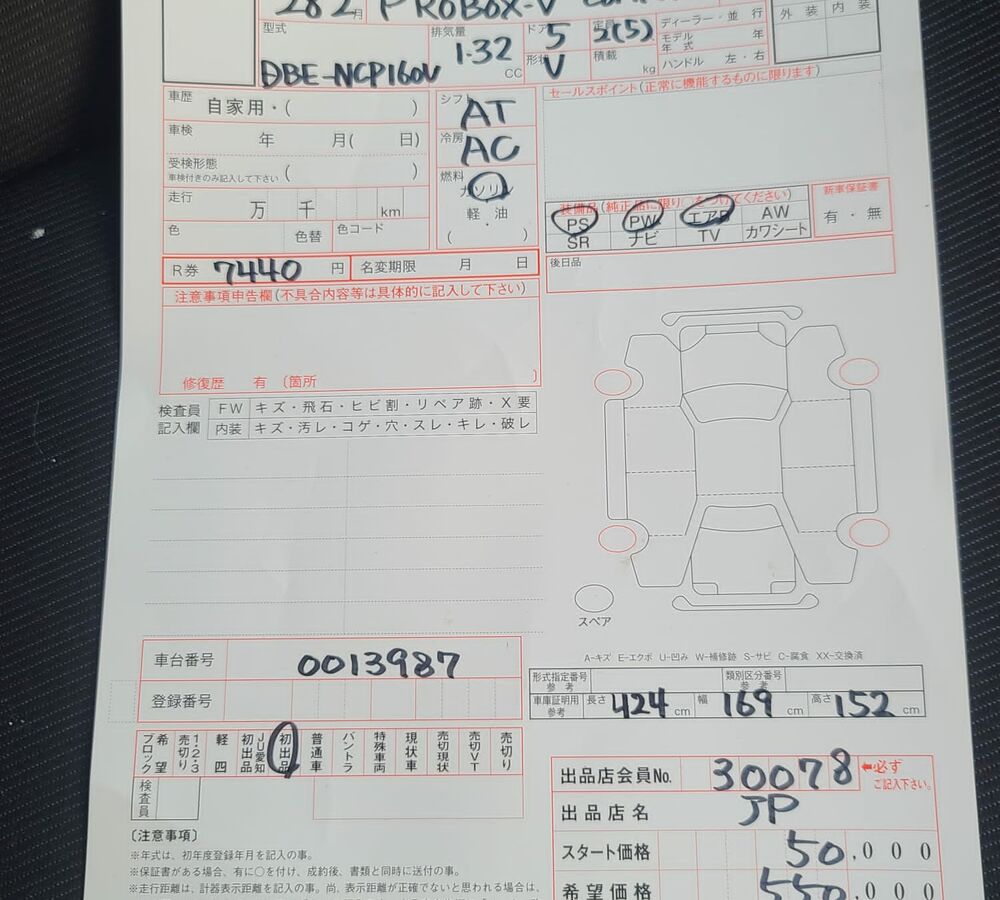 282月 PROBOX-V
型式 DBE-NCP160V
排気量 1.32 CC
ドア 5
形状 V
定員 2(5)
積載 kg
ディーラー・並 行
モデル年式 年
ハンドル 左・右
外 装 内 装
車歴 自家用・( )
車検 年 月( 日)
受検形態
車検付きのみ記入して下さい ( )
走行 万 千 km
色 色替 色コード
シフト AT
冷房 AC
燃料 ガソリン
軽 油
( ・ )
セールスポイント(正常に機能するものに限ります)
装備品(純正品に限り○をつけてください)
PS PW エアB AW
SR ナビ TV カワシート
新車保証書
有・無
R券 7440 円 名変期限 月 日
後日品
注意事項申告欄(不具合内容等は具体的に記入して下さい)
修復歴 有 〔箇所 〕
検査員記入欄
FW キズ・飛石・ヒビ割・リペア跡・X要
内装 キズ・汚レ・コゲ・穴・スレ・キレ・破レ
スペア
A-キズ E-エクボ U-凹み W-補修跡 S-サビ C-腐食 XX-交換済
車台番号 0013987
登録番号
形式指定番号参考 類別区分番号参考
車庫証明用参考 長さ 424 cm 幅 169 cm 高さ 152 cm
希望ブロック
売切り1・2・3
軽四
JU愛知初出品
初出品
普通車
バントラ
特殊車両
現状車
売切現状
売切VT
売切り
検査員
出品店会員No. 30078 ⬅必ずご記入下さい。
出品店名 JP
スタート価格 50,000
希望価格 550,000
〔注意事項〕
※年式は、初年度登録年月を記入の事。
※保証書がある場合、有に○を付け、成約後、書類と同時に送付の事。
※走行距離は、計器表示距離を記入の事。尚、表示距離が正確でないと思われる場合は、